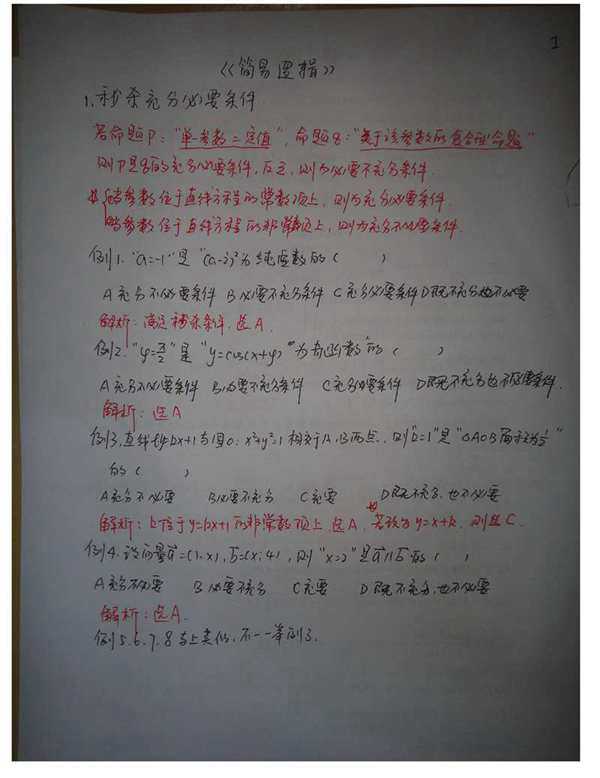 1
《简易逻辑》
1.秒杀充分必要条件
若命题P:“单一参数=定值”,命题q:“关于该参数的包含性命题”
则P是q的充分必要条件,反之,则为必要不充分条件.
若参数位于直线方程的常数项上,则为充分必要条件.
若参数位于直线方程的非常数项上,则为充分不必要条件.
例1.“a=-1”是“(a-i)²为纯虚数的( )
A 充分不必要条件 B 必要不充分条件 C 充分必要条件 D 既不充分也不必要
解析:满足秒杀条件.选A.
例2.“φ=π/2”是“y=cos(x+φ)为奇函数”的( )
A 充分不必要条件 B 必要不充分条件 C 充分必要条件 D 既不充分也不必要条件.
解析:选A
例3.直线l:y=kx+1与圆O:x²+y²=1相交于A,B两点,则“k=1”是“△AOB面积为½”
的( )
A 充分不必要 B 必要不充分 C 充要 D 既不充分,也不必要
解析:k位于y=kx+1的非常数项上,选A.若改为y=x+k,则选C.
例4.设向量a=(1,x),b=(x,4),则“x=2”是a∥b的( )
A 充分不必要 B 必要不充分 C 充要 D 既不充分,也不必要
解析:选A.
例5.6.7.8与上类似,不一一举例了.